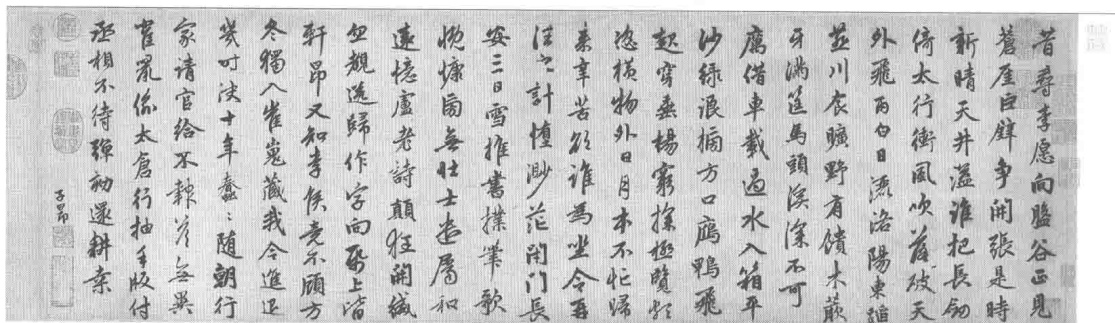 昔尋李愿向盤谷正見
蒼厓巨壁爭開張是時
新晴天井溢誰把長劍
倚太行衝風吹落破天
外飛雨白日洒洛陽東蹈
燕川食曠野有饋木蕨
牙滿筐馬頭溪深不可
厲借車載過水入箱平
沙綠浪榜方口鴈鴨飛
起穿垂楊窮探極覽頗
恣橫物外日月本不忙歸
來辛苦欲誰為坐令再
往之計墮渺茫閉門長
安三日雪推書撲筆歌
慨慷旁無壯士遣屬和
遠憶盧老詩顛狂開緘
忽覩送歸作字向紙上皆
軒昂又知李侯竟不顧方
冬獨入崔嵬藏我今進退
幾時決十年蠢〻隨朝行
家請官給不報答無異
雀鼠偷太倉行抽手版付
丞相不待彈劾還耕桑
子昂